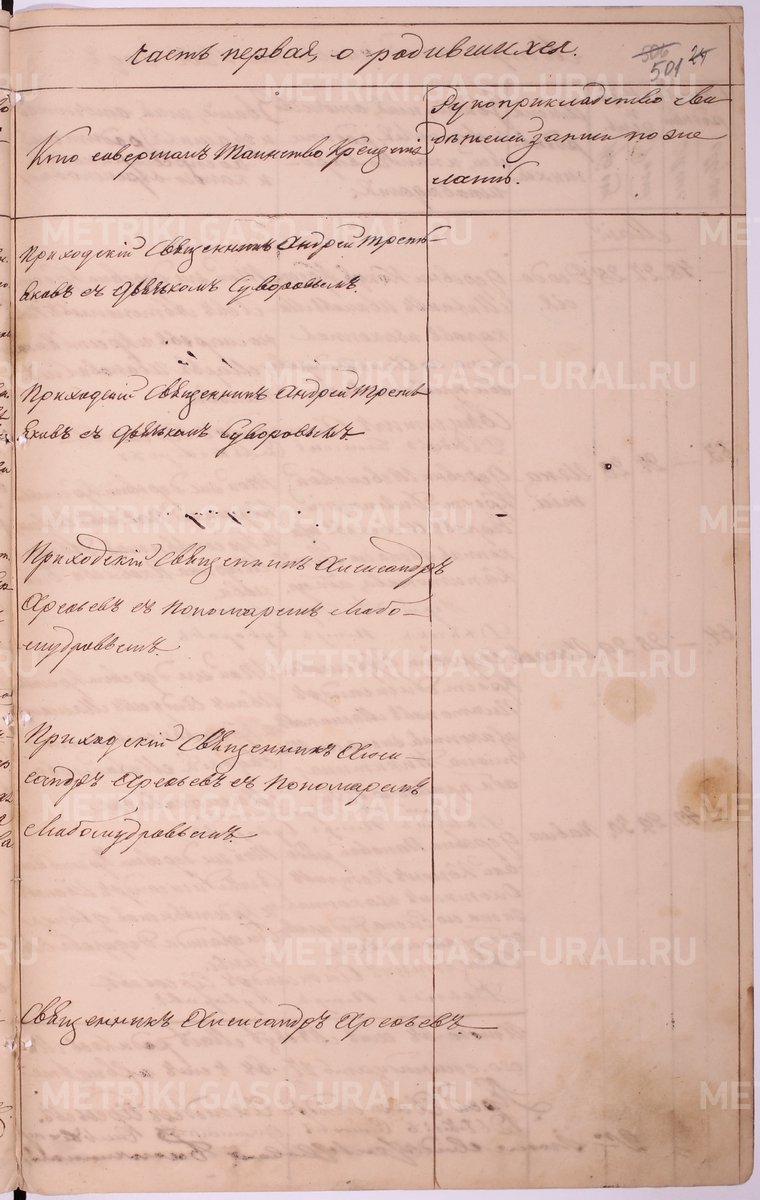 Часть первая, о родившихся.
506 24
501
Кто совершалъ Таинство Крещенія
Рукоприкладство сви
дѣтелей записи по же
ланію.
Приходскій Священникъ Андрей Треть-
яковъ съ дьячкомъ Суворовымъ.
Приходскій Священникъ Андрей Треть
яковъ съ дьячкомъ Суворовымъ.
Приходскій Священникъ Александръ
Арефьевъ съ Пономаремъ Любо-
мудровымъ.
Приходскій Священникъ Алек-
сандръ Арефьевъ съ Пономаремъ
Любомудровымъ.
Священникъ Александръ Арефьевъ.
METRIKI.GASO-URAL.RU